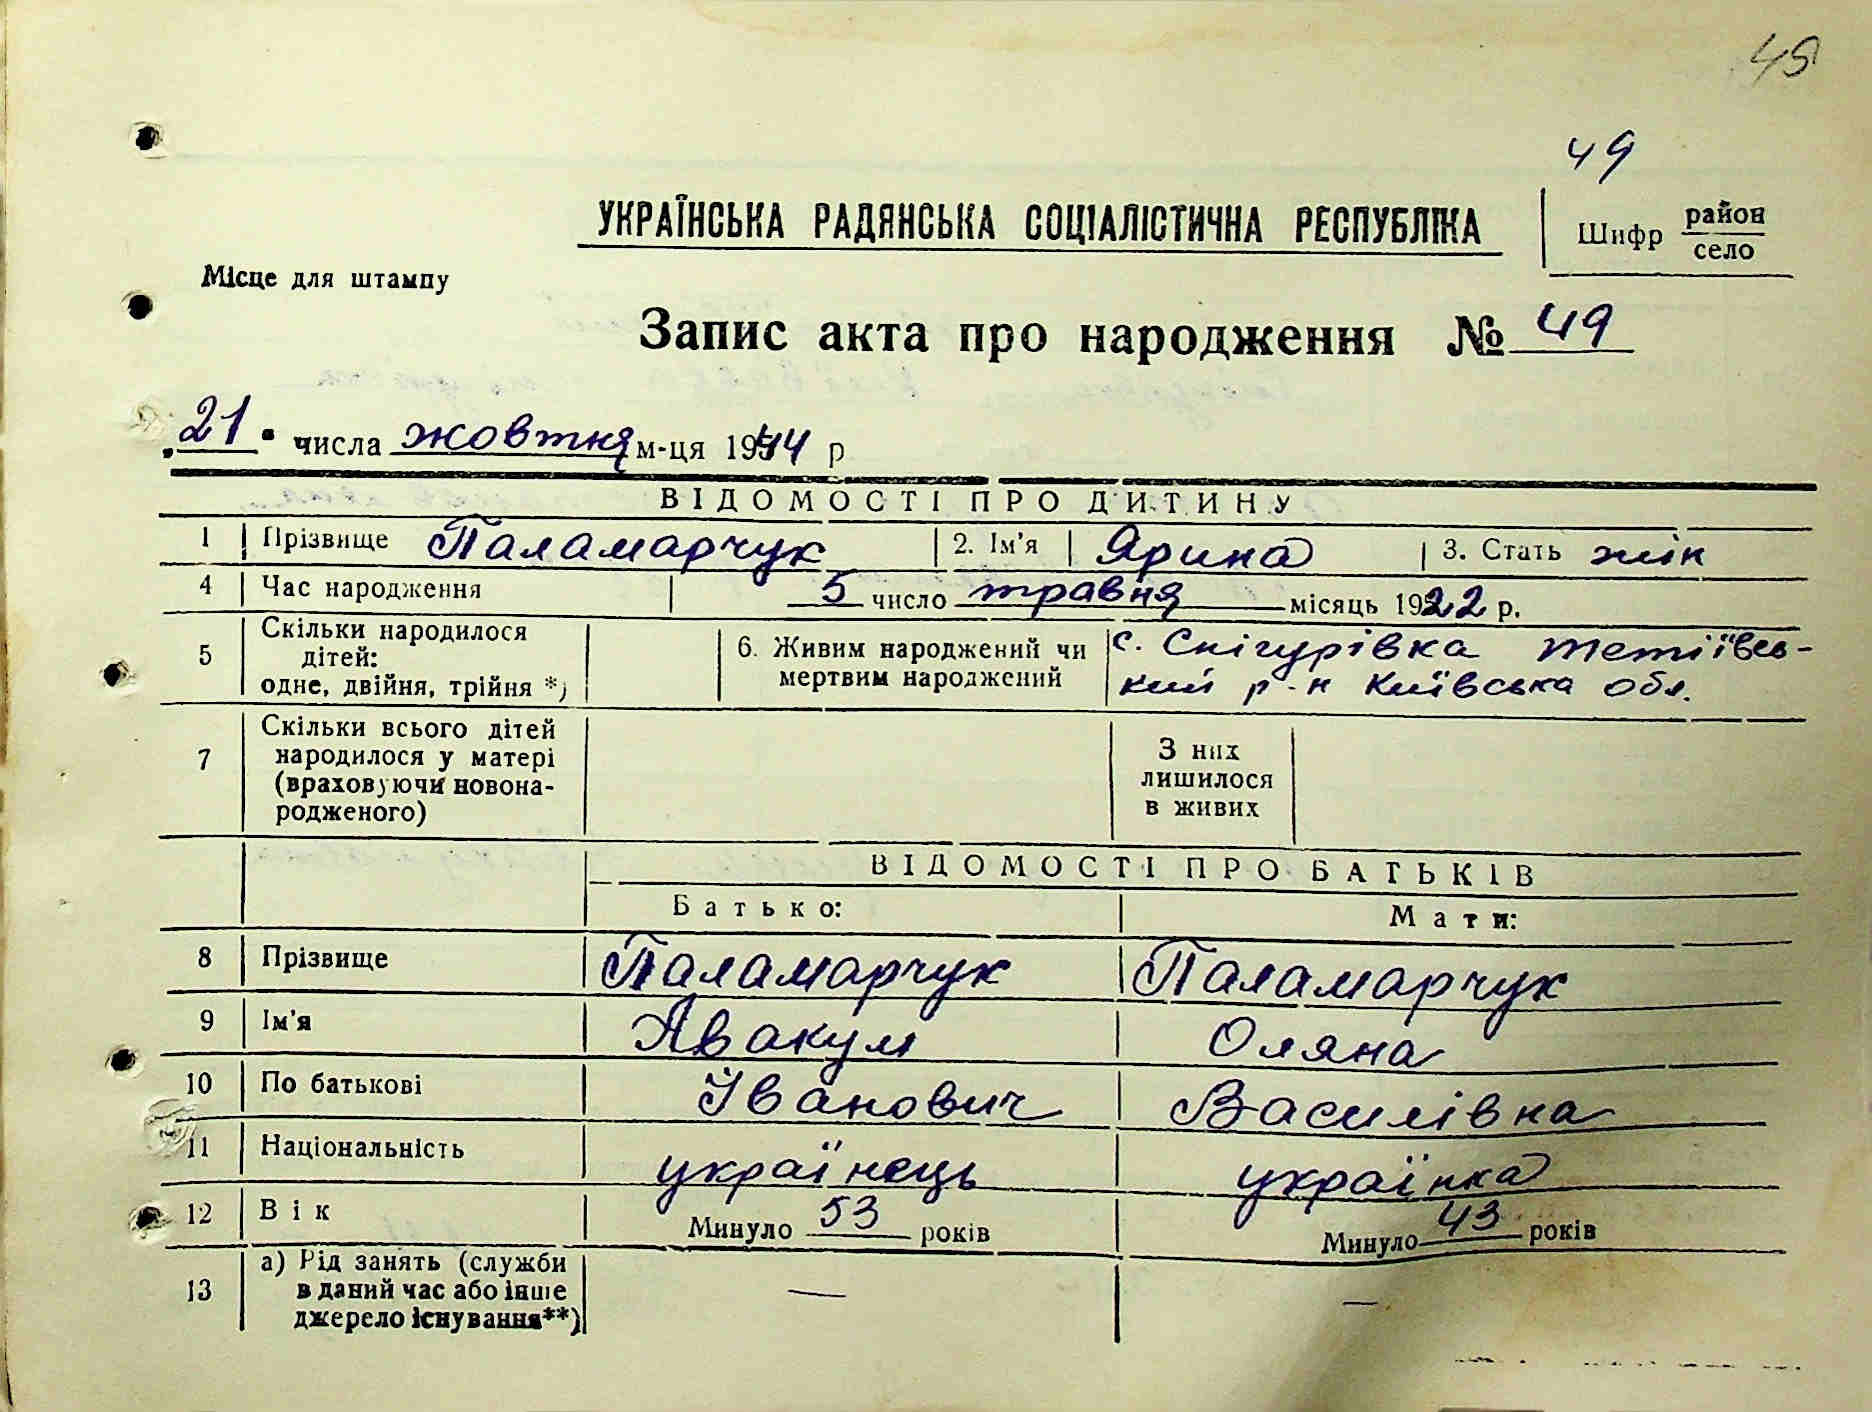 49
49
УКРАЇНСЬКА РАДЯНСЬКА СОЦІАЛІСТИЧНА РЕСПУБЛІКА
Шифр район
село
Місце для штампу
Запис акта про народження № 49
„21" числа жовтня м-ця 1944 р
ВІДОМОСТІ ПРО ДИТИНУ
1 Прізвище Паламарчук 2. Ім'я Ярина 3. Стать жін
4 Час народження 5 число травня місяць 1922 р.
5 Скільки народилося дітей: одне, двійня, трійня *)
6. Живим народжений чи мертвим народжений
с. Снігурівка Тетіївсь-
кий р-н Київська обл.
7 Скільки всього дітей
народилося у матері
(враховуючи новона-
родженого)
З них
лишилося
в живих
ВІДОМОСТІ ПРО БАТЬКІВ
Батько: Мати:
8 Прізвище Паламарчук Паламарчук
9 Ім'я Авакум Оляна
10 По батькові Іванович Василівна
11 Національність українець українка
12 Вік Минуло 53 років Минуло 43 років
13 а) Рід занять (служби
в даний час або інше
джерело існування**)
— —